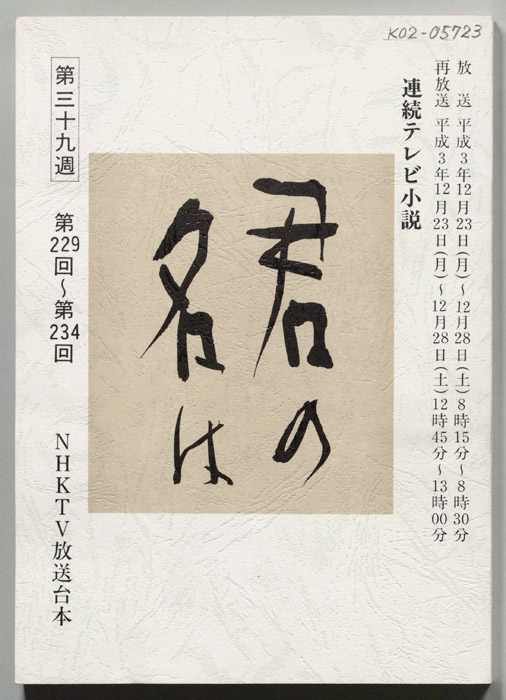 K02-05723
放　送 平成3年12月23日(月)～12月28日(土)8時15分～8時30分
再放送 平成3年12月23日(月)～12月28日(土)12時45分～13時00分
連続テレビ小説
君の
名は
第三十九週
第229回～第234回
NHKTV放送台本